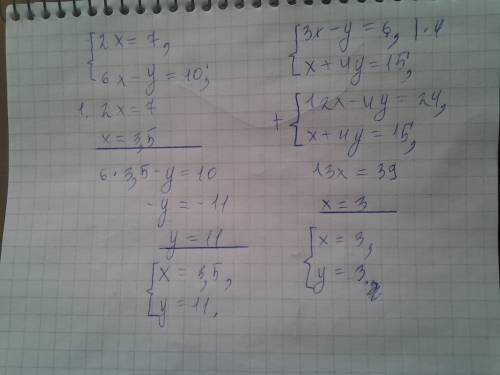 {2x = 7,
{6x - y = 10;
1. 2x = 7
x = 3,5
6 · 3,5 - y = 10
-y = -11
y = 11
{x = 3,5,
{y = 11.
{3x - y = 6, | · 4
{x + 4y = 15,
+ {12x - 4y = 24,
{x + 4y = 15,
13x = 39
x = 3
{x = 3,
{y = 3.